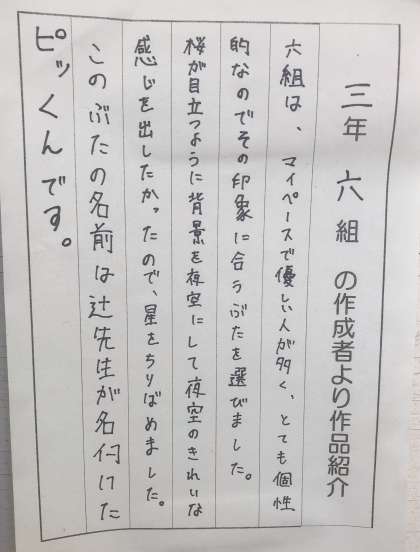 三年 六組 の作成者より作品紹介
六組は、マイペースで優しい人が多く、とても個性
的なのでその印象に合うぶたを選びました。
桜が目立つように背景を夜空にして夜空のきれいな
感じを出したかったので、星をちりばめました。
このぶたの名前は辻先生が名付けた
ピッくんです。